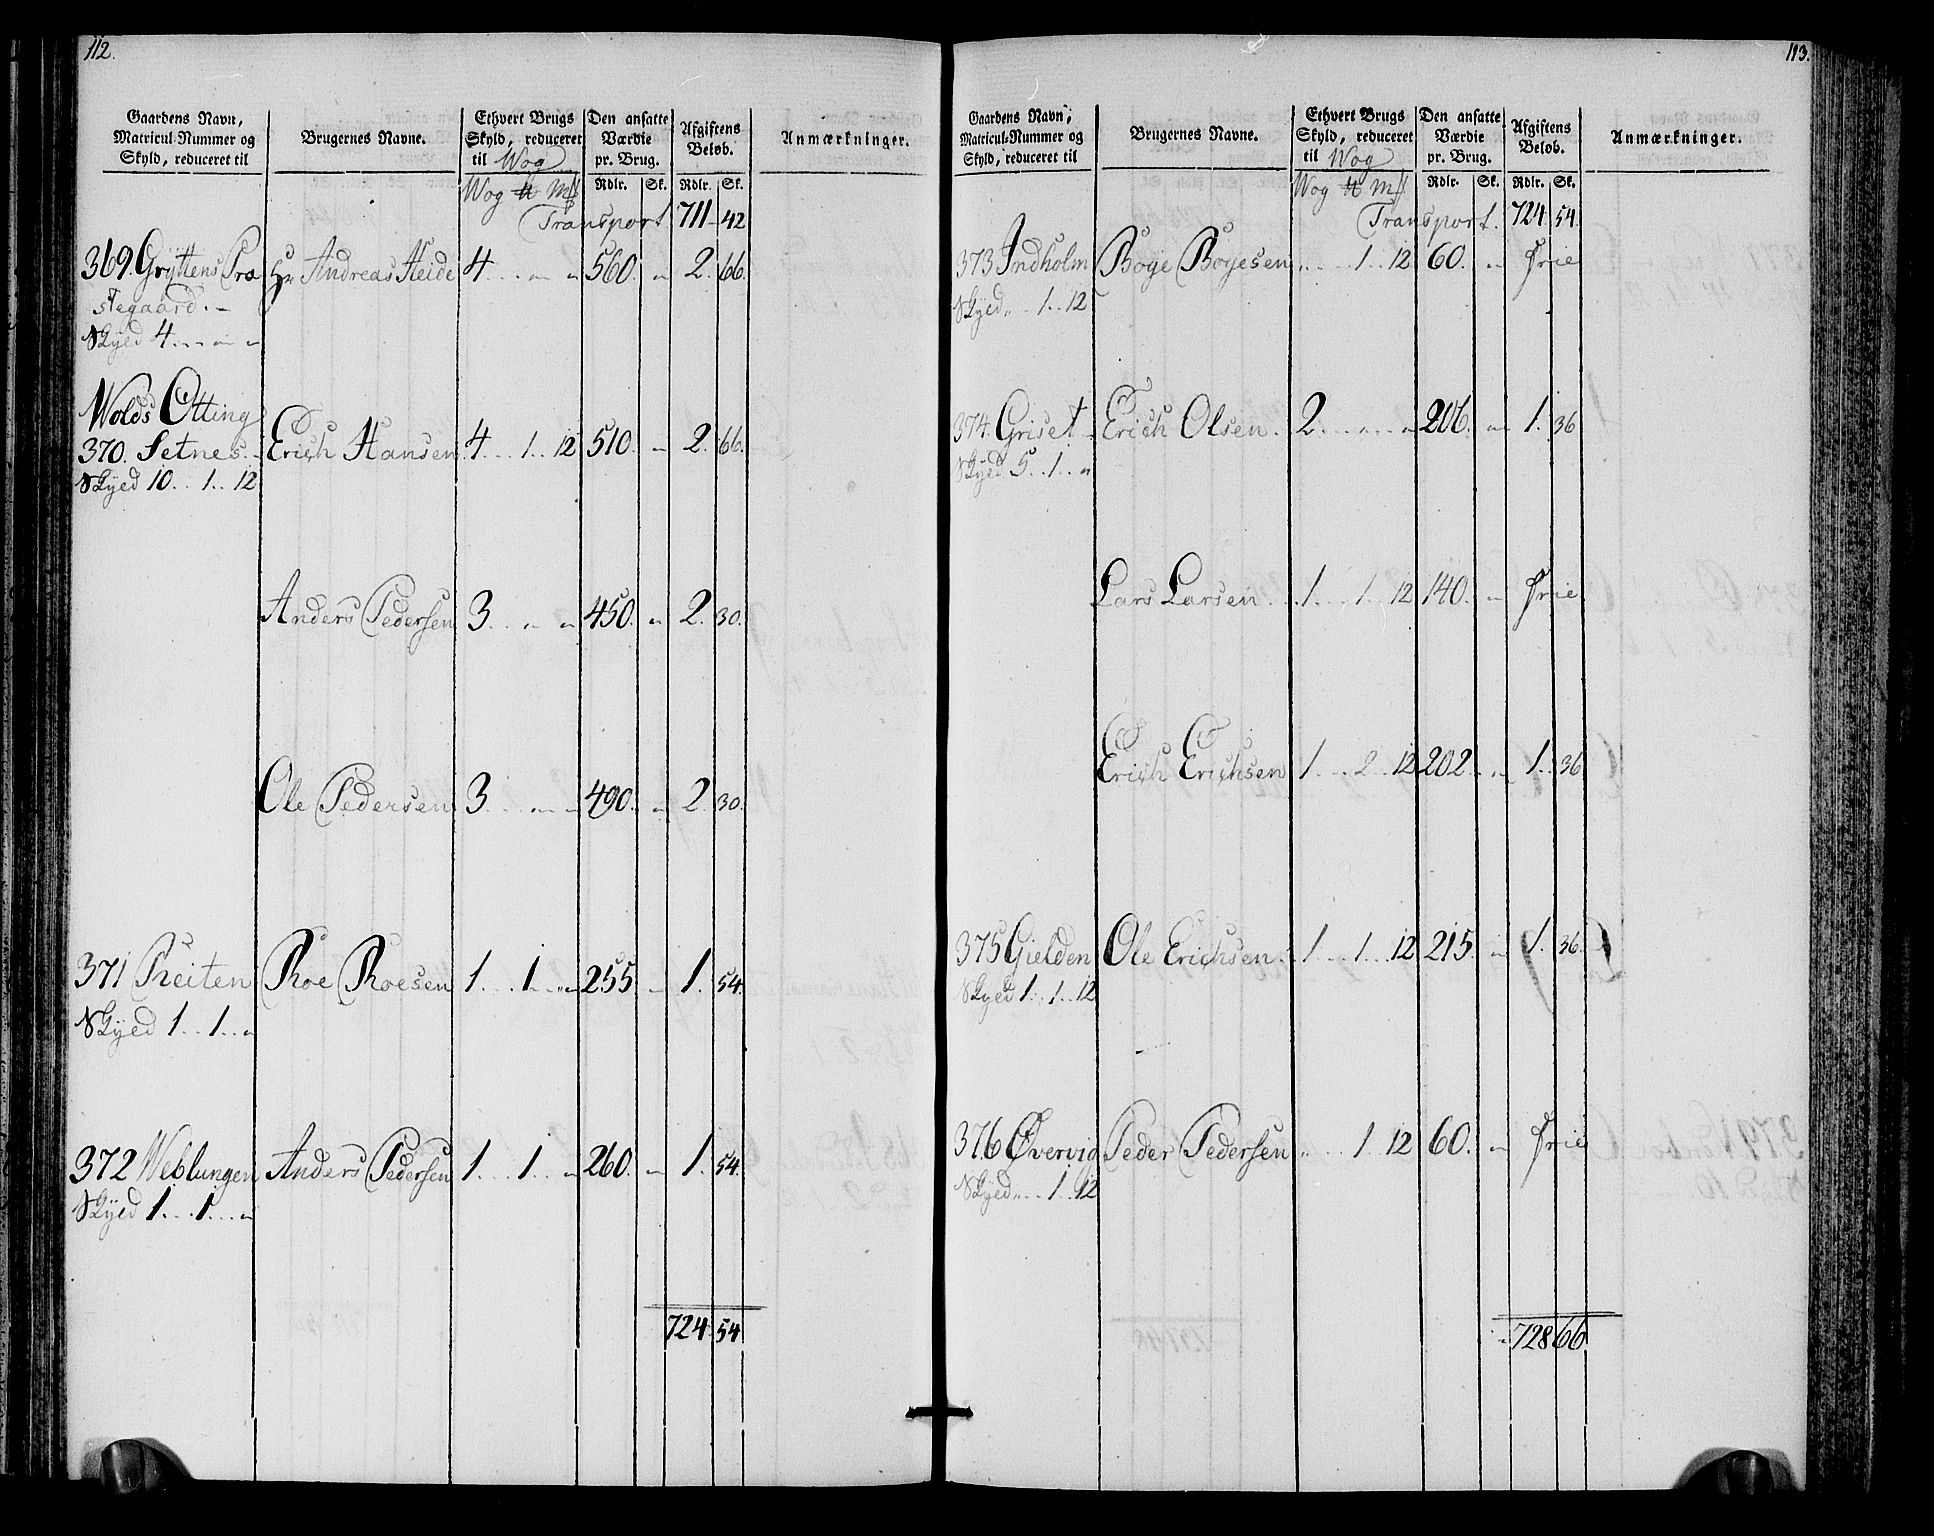 112.
Gaardens Navn, Matricul-Nummer og Skyld, reduceret til | Brugernes Navne. | Ethvert Brugs Skyld, reduceret til Wog | Den ansatte Værdie pr. Brug. | Afgiftens Beløb. | Anmærkninger.
Wog ℔ Mk | Rdlr. | Sk. | Rdlr. | Sk.
Transport 711 42
369. Gryttens Præ Hr Andreas Heide 4 .. „ „ 560. „ 2. 66.
stegaard. –
Skyed 4 .. „ „
Wolds Otting
370. Setnes. Erich Hansen 4 .. 1 .. 12 510 „ 2. 66.
Skyed 10 .. 1 .. 12
Anders Pedersen 3 .. „ „ 450. „ 2. 30.
Ole Pedersen 3 .. „ „ 490. „ 2. 30.
371 Reiten Roe Roesen 1 .. 1 .. „ 255. „ 1. 54.
Skyed 1 .. 1 .. „
372 Weblungen Anders Pedersen 1 .. 1 .. „ 260. „ 1. 54.
Skyed 1 .. 1 .. „
724 54
113.
Gaardens Navn, Matricul-Nummer og Skyld, reduceret til | Brugernes Navne. | Ethvert Brugs Skyld, reduceret til Wog | Den ansatte Værdie pr. Brug. | Afgiftens Beløb. | Anmærkninger.
Wog ℔ Mk | Rdlr. | Sk. | Rdlr. | Sk.
Transport. 724 54
373 Indholm Boye Boyesen „ .. 1 .. 12 60. „ Frie
Skyed „ .. 1 .. 12
374. Griset Erich Olsen. 2 .. „ „ 206. „ 1. 36
Skyed 5 .. 1 .. „
Lars Larsen 1 .. 1 .. 12 140. „ Frie
Erich Erichsen 1 .. 2 .. 12 202. „ 1. 36
375 Gielden Ole Erichsen. 1 .. 1 .. 12 215. „ 1. 36.
Skyed 1 .. 1 .. 12
376 Øvervig Peder Pedersen „ .. 1 12 60. „ Frie
Skyed „ .. 1 .. 12
728 66